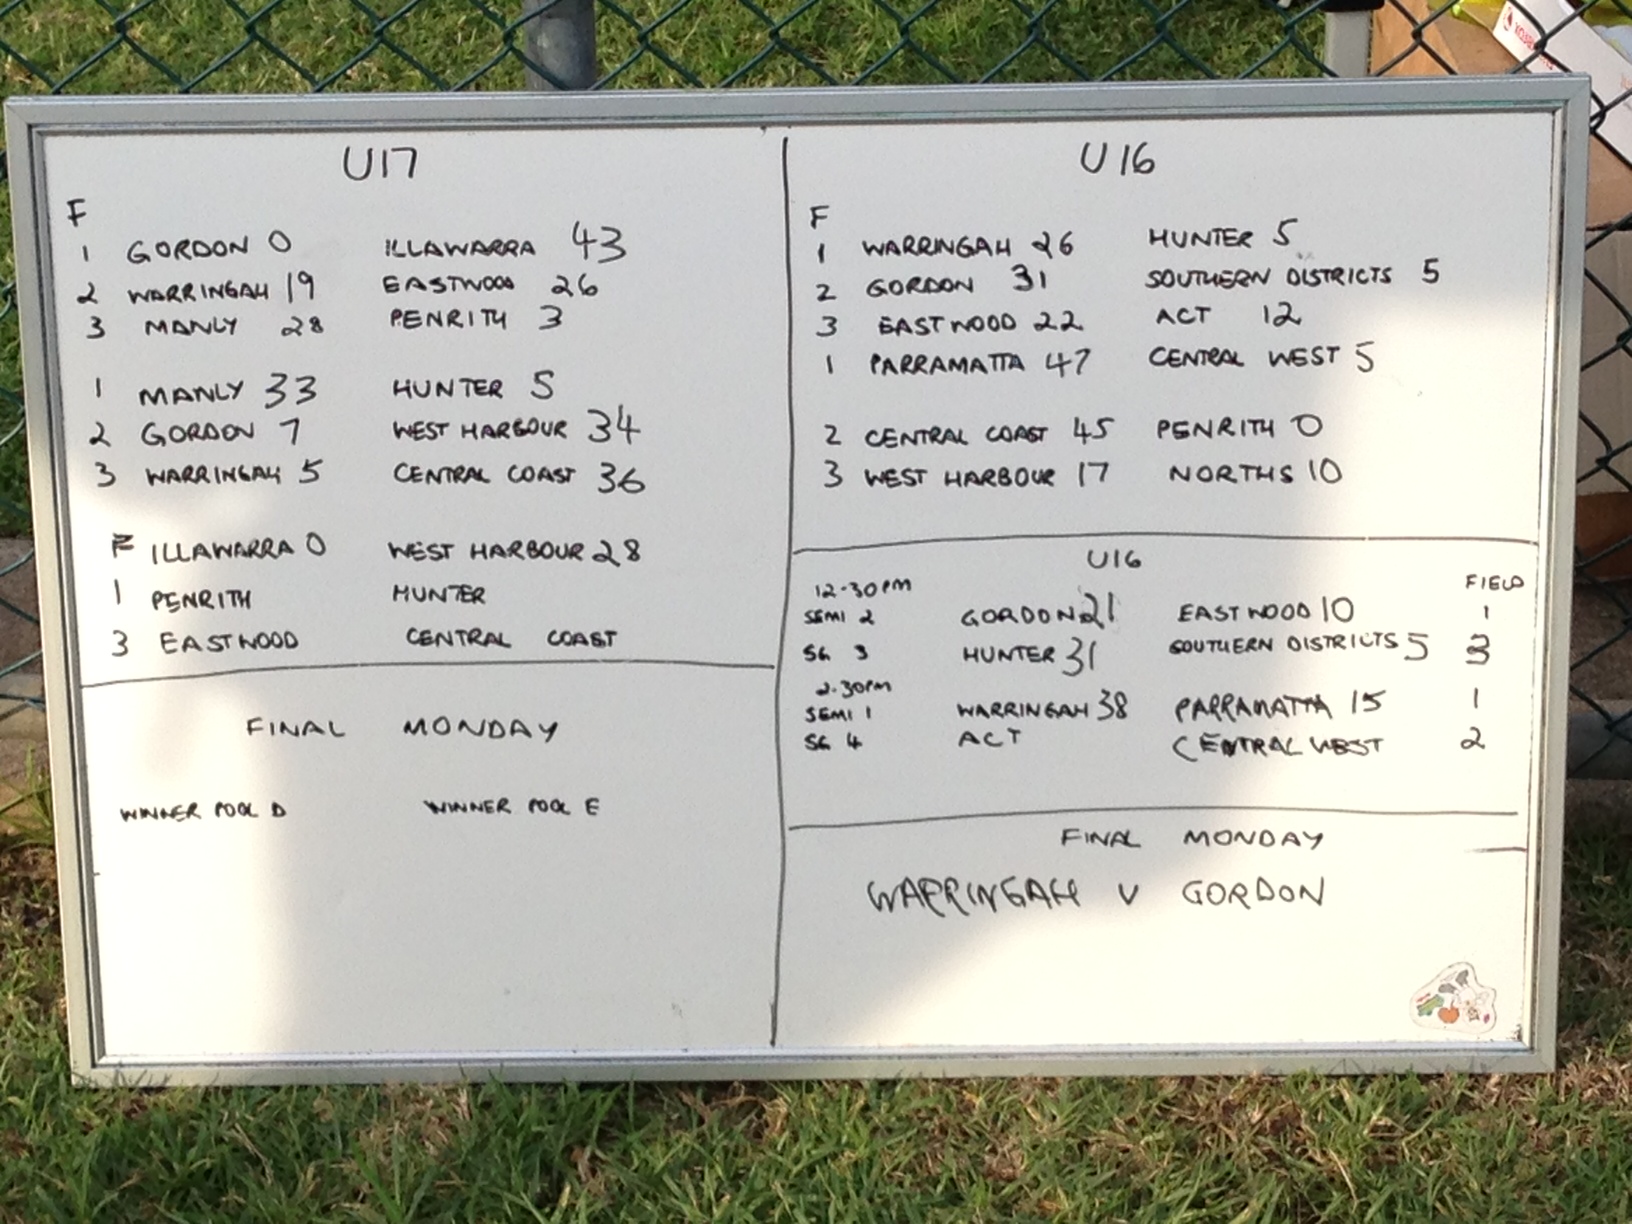 U17
F
1 GORDON 0 ILLAWARRA 43
2 WARRINGAH 19 EASTWOOD 26
3 MANLY 28 PENRITH 3
1 MANLY 33 HUNTER 5
2 GORDON 7 WEST HARBOUR 34
3 WARRINGAH 5 CENTRAL COAST 36
F ILLAWARRA 0 WEST HARBOUR 28
1 PENRITH HUNTER
3 EASTWOOD CENTRAL COAST
FINAL MONDAY
WINNER POOL D WINNER POOL E
U16
F
1 WARRINGAH 26 HUNTER 5
2 GORDON 31 SOUTHERN DISTRICTS 5
3 EASTWOOD 22 ACT 12
1 PARRAMATTA 47 CENTRAL WEST 5
2 CENTRAL COAST 45 PENRITH 0
3 WEST HARBOUR 17 NORTHS 10
U16
12.30PM FIELD
SEMI 2 GORDON 21 EASTWOOD 10 1
SG 3 HUNTER 31 SOUTHERN DISTRICTS 5 3
2.30PM
SEMI 1 WARRINGAH 38 PARRAMATTA 15 1
SG 4 ACT CENTRAL WEST 2
FINAL MONDAY
WARRINGAH V GORDON